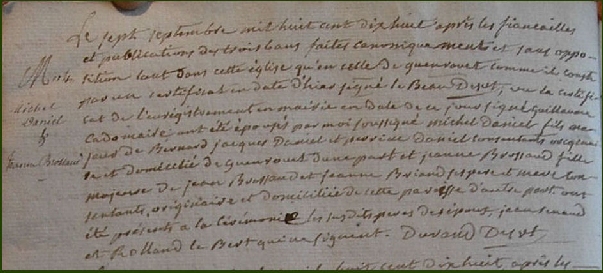 Le sept septembre mil huit cent dix huit après les fiancailles
et publications des trois bans faites canoniquement et sans oppo-
sition tant dans cette église qu'en celle de quenvouet comme il conste
par un certificat en date d'hier signé le Beau Desst, vu la certifi
cat de l'enregistrement en mairie en date de ce jour signé Guillaume
Cadomaire ont été épousés par moi soussigné michel Daniel fils ma
jeur de Bernard jacques Daniel et Daniel consentants originai
re et domicilié de quenvouet d'une part et jeanne Brossaud fille
majeure de jean Brossaud et jeanne Briand ses pere et mere con-
sentants, originaire et domiciliée de cette paroisse d'autre part ont
été présents a la cérémonie les susdits peres des époux, jean
et Rolland le Bert qui ne signent. Durand Desst
Mage
Michel
Daniel
&
jeanne
huit cent dix huit, après les